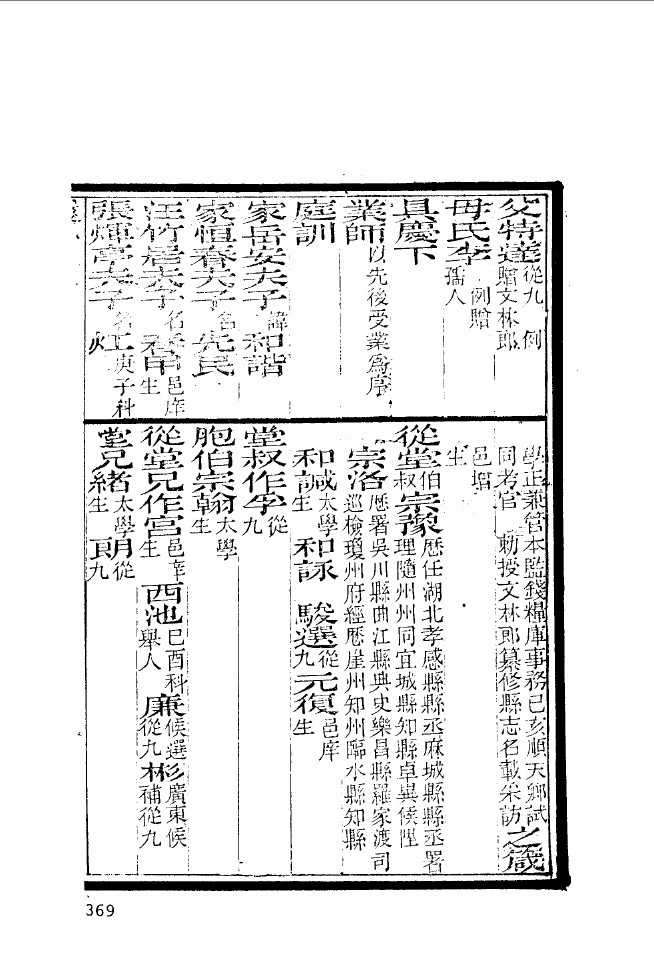 父特達從九 例贈文林郎
母氏李 例贈孺人
具慶下
業師以先後受業爲序
庭訓
家岳安夫子諱和諧
家恒春夫子名先民
汪竹居夫子名 邑庠生
張煇亭夫子名 庚子科
學正兼管本監錢糧庫事務己亥順天鄉試同考官 勅授文林郎纂修縣志名載采訪 之箴
邑增生
從堂伯叔宗豫歷任湖北孝感縣縣丞麻城縣縣丞署理隨州州同宜城縣知縣卓異候陞
宗洛歷署吳川縣曲江縣典史樂昌縣羅家渡司巡檢瓊州府經歷崖州知州臨水縣知縣
和諴太學生 和詠 駿選從九 元復邑庠生
堂叔作孚從九
胞伯宗翰太學生
從堂兄作宮邑庠生 西池己酉科舉人 廉候選從九 彬廣東候補從九
堂兄緒太學生 朗從九
369